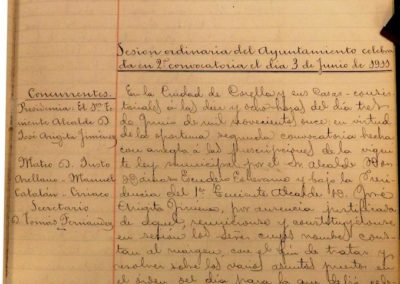 Sesion ordinaria del Ayuntamiento celebra-
da en 2ª convocatoria el dia 3 de Junio de 1911
Concurrentes.
Presidencia. El 1er Te-
niente Alcalde D.
José Arigita Jimenez
Mateo D. Justo
Arellano - Manuel
Catalán -
Secretario
D. Tomás Fernandez
En la Ciudad de Corella y sus Casas-consis-
toriales á las diez y ocho horas del dia tres
de Junio de mil novecientos once en virtud
de la oportuna segunda convocatoria hecha
con arreglo á las prescripciones de la vigen-
te ley municipal por el Sr Alcalde Don
Escudero y bajo la Presi-
dencia del 1er Teniente Alcalde D. José
Arigita por ausencia justificada
de aquel, y constituyéndose
en sesión los Sres cuyos nombres cons-
tan al margen, con el fin de tratar y
resolver sobre los varios asuntos puestos en
el orden del dia para la que debia cele-